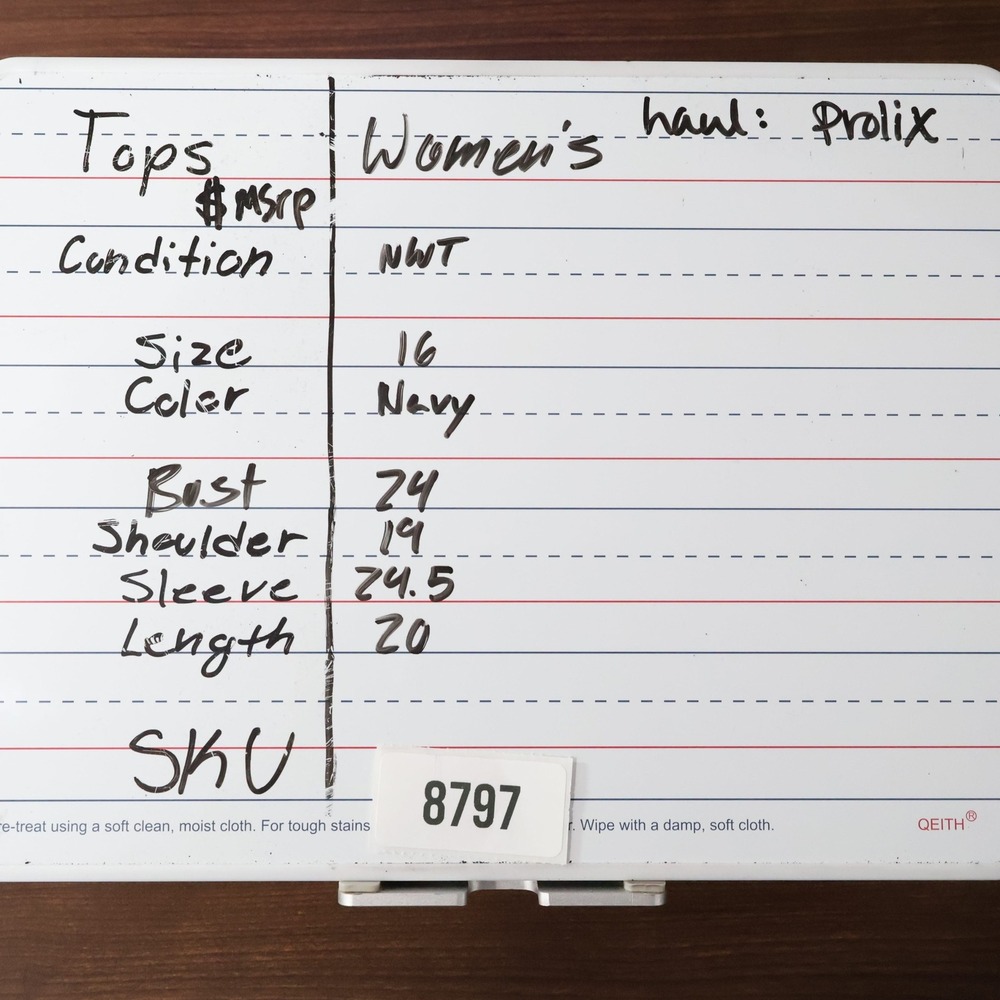 Tops Women's haul: Prolix
$ MSrp
Condition NWT
Size 16
Color Navy
Bust 24
Shoulder 19
Sleeve 24.5
Length 20
SKU 8797
re-treat using a soft clean, moist cloth. For tough stains r. Wipe with a damp, soft cloth. QEITH®